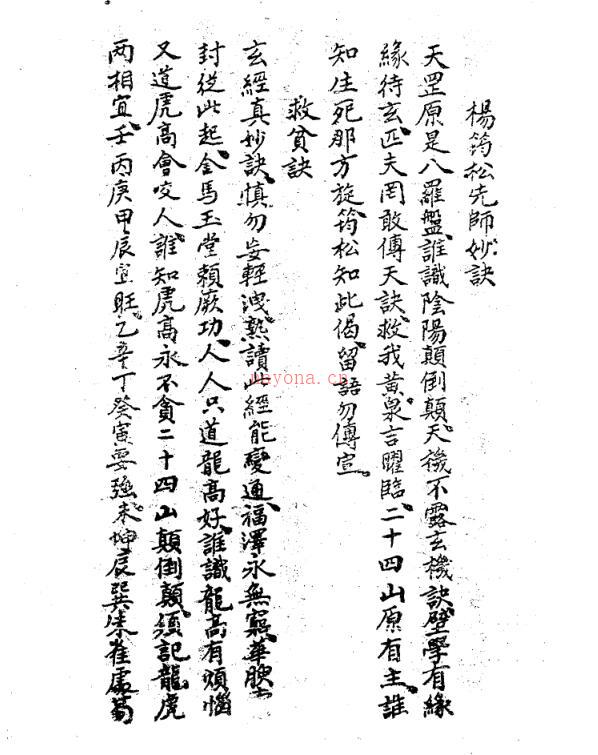 楊筠松先師妙訣
天罡原是八羅盤誰識陰陽顛倒顛天機不露玄機訣壁學有緣
緣待玄匹夫罔敢傳天訣救我黃泉言曜臨二十四山原有主誰
知生死那方旋筠松知此偈留語勿傳宣
救貧訣
玄經真妙訣慎勿妄輕洩熟讀此經能變通福澤永無窮華腴
封從此起金馬玉堂賴厥功人人只道龍高好誰識龍高有煩惱
又道虎高會咬人誰知虎高永不貪二十四山顛倒顛須記龍虎
两相宜壬丙庚甲辰宜旺乙辛丁癸寅要強未坤辰巽朱雀處
unyona.cn